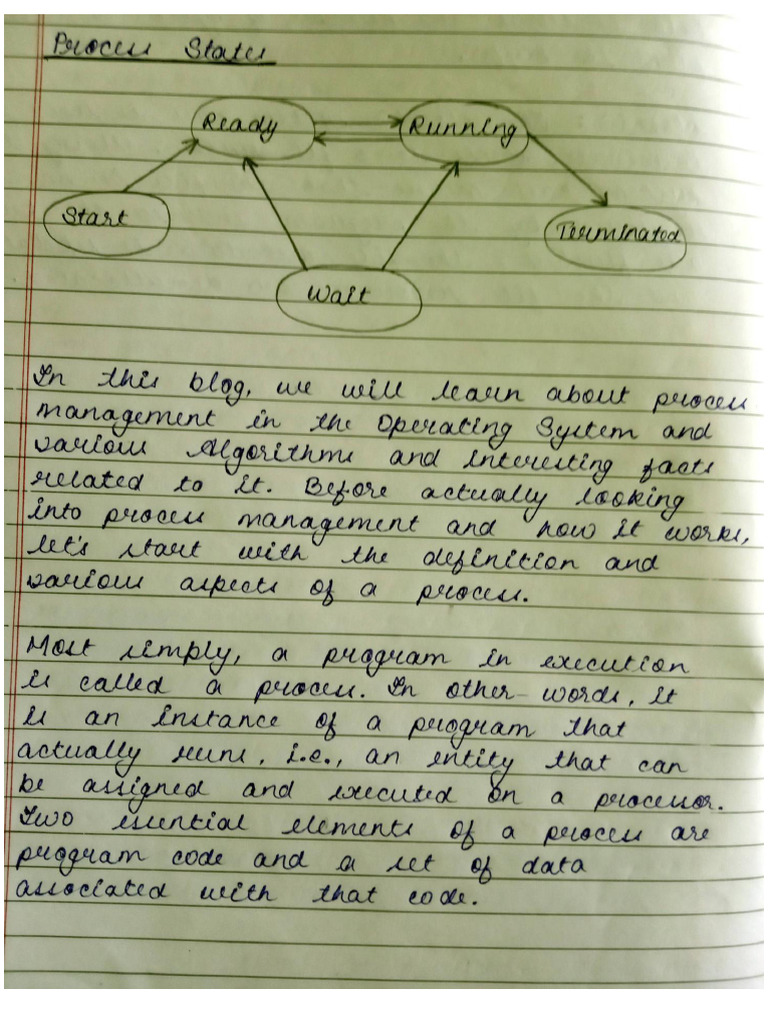 Process States
Ready
Running
Start
Terminated
Wait
In this blog, we will learn about process
management in the Operating System and
various Algorithms and interesting facts
related to it. Before actually looking
into process management and how it works,
let's start with the definition and
various aspects of a process.
Most simply, a program in execution
is called a process. In other words, it
is an instance of a program that
actually runs, i.e., an entity that can
be assigned and executed on a processor.
Two essential elements of a process are
program code and a set of data
associated with that code.